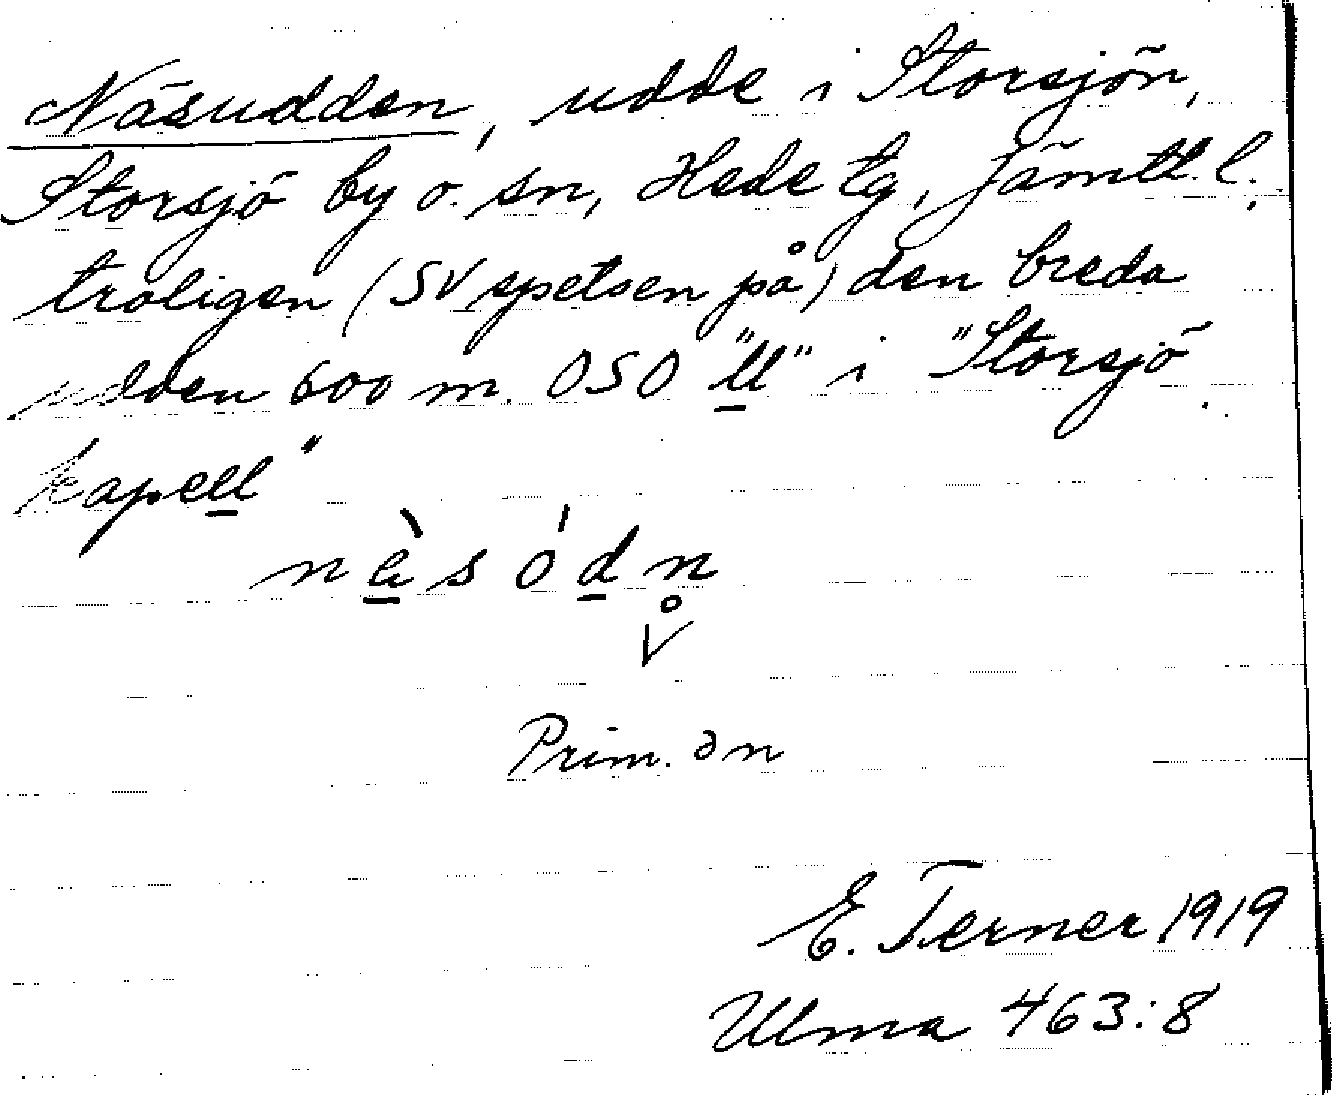 Näsudden, udde i Storsjön,
Storsjö by o. sn, Hede tg, Jämtl. l.
troligen (SV spetsen på) den breda
udden 600 m. OSO "ll" i "Storsjö
kapell"
nὲsódn̥
Prim. ən
E. Terner 1919
Ulma 463:8